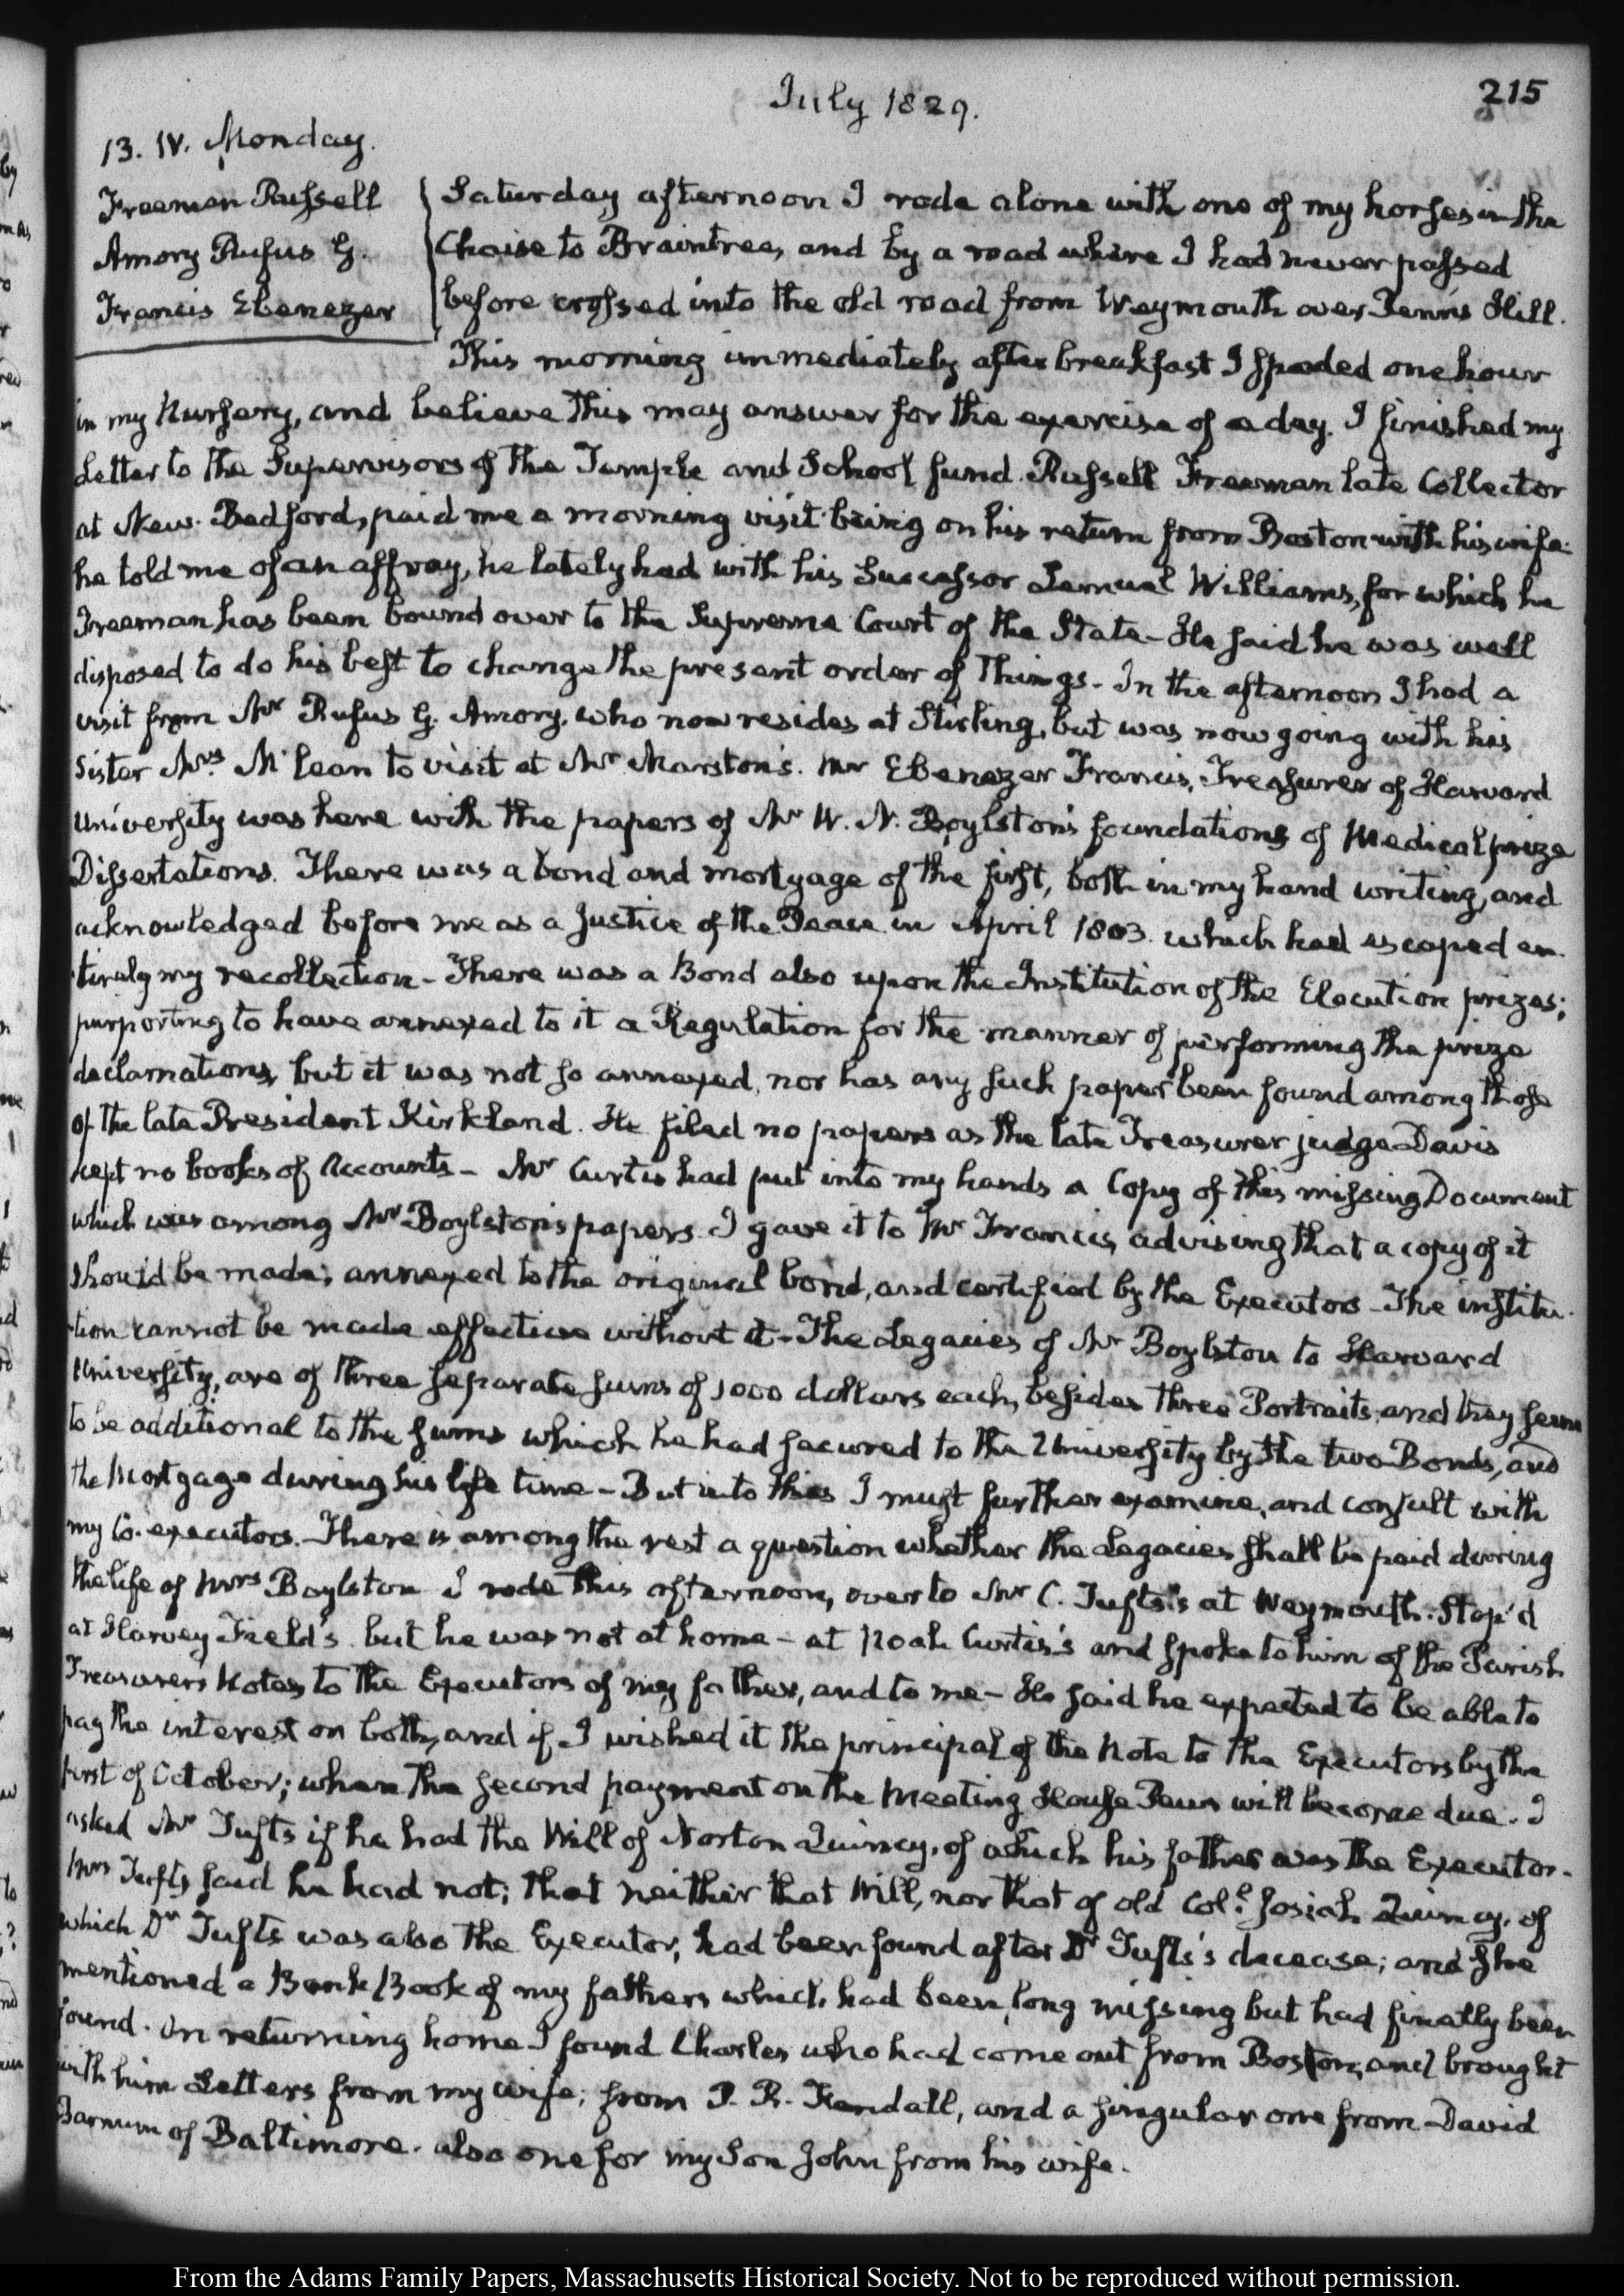 July 1829.
215
13. IV. Monday.
Freeman Russell
Amory Rufus G.
Francis Ebenezer
Saturday afternoon I rode alone with one of my horses in the
Chaise to Braintree, and by a road where I had never passed
before crossed into the old road from Weymouth over Penn's Hill.
This morning immediately after breakfast I spaded one hour
in my Nursery, and believe this may answer for the exercise of a day. I finished my
Letter to the Supervisors of the Temple and School fund. Russell Freeman late Collector
at New-Bedford, paid me a morning visit being on his return from Boston with his wife:
he told me of an affray, he lately had with his Successor Lemuel Williams, for which he
Freeman has been bound over to the Supreme Court of the State - He said he was well
disposed to do his best to change the present order of Things - In the afternoon I had a
visit from Mr Rufus G. Amory, who now resides at Stirling, but was now going with his
Sister Mrs McLean to visit at Mr Marston's. Mr Ebenezer Francis, Treasurer of Harvard
University was here with the papers of Mr W. N. Boylston's foundations of Medical prize
Dissertations. There was a bond and mortgage of the first, both in my hand writing, and
acknowledged before me as a Justice of the Peace in April 1803. which had escaped en-
tirely my recollection - There was a Bond also upon the Institution of the Elocution prizes;
purporting to have annexed to it a Regulation for the manner of performing the prize
declamations, but it was not so annexed, nor has any such paper been found among those
of the late President Kirkland. He filed no papers as the late Treasurer judge Davis
kept no books of Accounts - Mr Curtis had put into my hands a Copy of this missing Document
which was among Mr Boylston's papers. I gave it to Mr Francis, advising that a copy of it
should be made; annexed to the original bond, and certified by the Executors - The institu-
tion cannot be made effective without it - The Legacies of Mr Boylston to Harvard
University, are of three separate sums of 1000 dollars each, besides three Portraits, and they seem
to be additional to the sums which he had secured to the University by the two Bonds, and
the Mortgage during his life time - But into this I must further examine, and consult with
my Co-executors. There is among the rest a question whether the Legacies shall be paid during
the life of Mrs Boylston I rode this afternoon, over to Mr C. Tufts's at Weymouth. Stop'd
at Harvey Field's but he was not at home - at Noah Curtis's and spoke to him of the Parish
Treasurer's Notes to the Executors of my father, and to me - He said he expected to be able to
pay the interest on both, and if I wished it the principal of the Note to the Executors by the
first of October; when the second payment on the Meeting House Pews will become due. I
asked Mr Tufts if he had the Will of Norton Quincy, of which his father was the Executor -
Mrs Tufts said he had not; that neither that Will, nor that of old Coll. Josiah Quincy, of
which Dr Tufts was also the Executor, had been found after Dr Tufts's decease; and she
mentioned a Bank Book of my fathers which had been long missing but had finally been
found. On returning home I found Charles who had come out from Boston, and brought
with him Letters from my wife; from P. R. Fendall, and a singular one from David
Barnum of Baltimore. also one for my Son John from his wife.
From the Adams Family Papers, Massachusetts Historical Society. Not to be reproduced without permission.